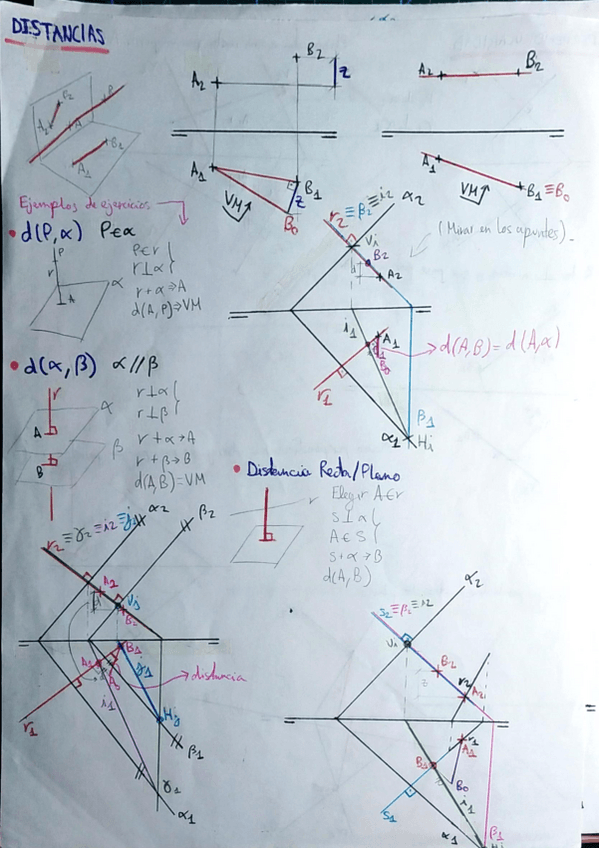 DISTANCIAS
A2 B2 z
A1 B1 z
VM B0
A2 B2
A1 B1≡B0
VM
A2 B2 A P
A1 B1
Ejemplos de ejercicios
• d(P,α) P∉α
P∈r
r⊥α
r+α→A
d(A,P)→VM
P r A α
r2≡β2≡i2 α2
Vi
B2
A2
(Mirar en los apuntes).
i1 A1
B0
d(A,B)=d(A,α)
r1
β1
α1 Hi
• d(α,β) α//β
r⊥α
r⊥β
r+α→A
r+β→B
d(A,B)=VM
r α A β B
• Distancia Recta/Plano
r Elegir A∈r
s⊥α
A∈s
s+α→B
d(A,B)
r2≡γ2≡i2≡j2 α2 β2
A2 Vj
B2
B1
A1 A0
distancia
i1
r1
Hj
β1
γ1
α1
α2
s2≡β2≡i2
Vi
B2
z r2 A2
r1
B1 A1
B0
i1
s1
α1 β1
Hi